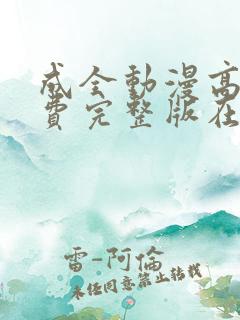 成全動漫高
費完整版在
雷-阿倫
未經同意禁止轉載